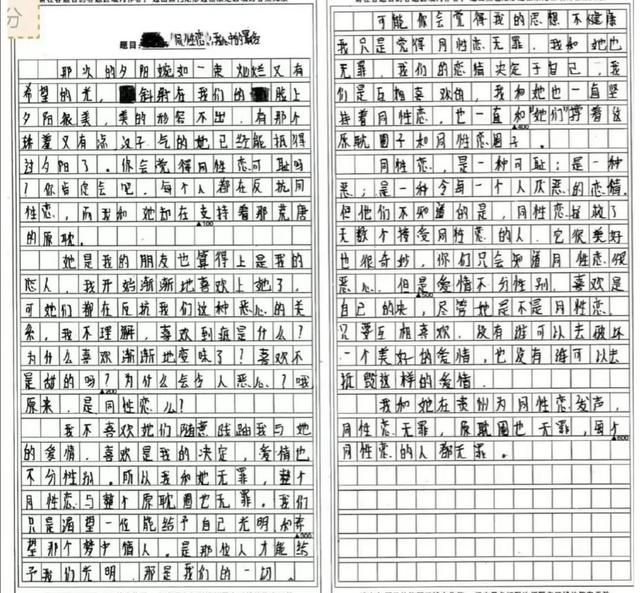 分
题目
"同性恋"
那次的夕阳婉如一束灿烂又有
希望的光，斜射在我们的脸上
夕阳很美，美的形容不出，有那个
珠着又有点汉子气的她已经能抵得
过夕阳了。你会觉得同性恋可耻吗
？你肯定会吧，每个人都在反抗同
性恋，而我和她却在支持着那荒唐
的原耽。
她是我的朋友也算得上是我的
恋人，我开始渐渐地喜欢上她了，
可她们都在反抗我们这种恶心的关
系，我不理解，喜欢到底是什么？
为什么喜欢渐渐地变味了？喜欢不
是甜的吗？为什么会令人恶心？哦
原来，是同性恋么？
我不喜欢她们随意践踏我与她
的爱情，喜欢是我的决定，爱情也
不分性别。所以我和她无罪，整个
同性恋与整个原耽圈也无罪。我们
只是渴望一位能给予自己光明和希
望那个梦中情人。是那位人才能给
予我们光明，那是我们的一切。
可能你会觉得我的思想不健康
我只是觉得同性恋无罪，我和她也
无罪，我们的恋情决定于自己，我
们是互相喜欢的，我和她也一直坚
持着同性恋，也一直和"她们"撑着这
原耽圈子和同性恋圈子。
同性恋，是一种可耻；是一种
恶；是一种令每一个人厌恶的恋情
但他们不知道的是，同性恋拯救了
无数个接受同性恋的人，它很美好
也很奇妙，你们只会知道同性恋很
恶心，但是爱情不分性别，喜欢是
自己的决，尽管她是不是同性恋。
只要互相喜欢，没有谁可以去破坏
一个美好的爱情，也没有谁可以去
诋毁这样的爱情。
我和她在贵州为同性恋发声，
同性恋无罪，原耽圈也无罪，每个
同性恋的人都无罪。
▲100
▲200
▲300
▲400
▲500
▲600